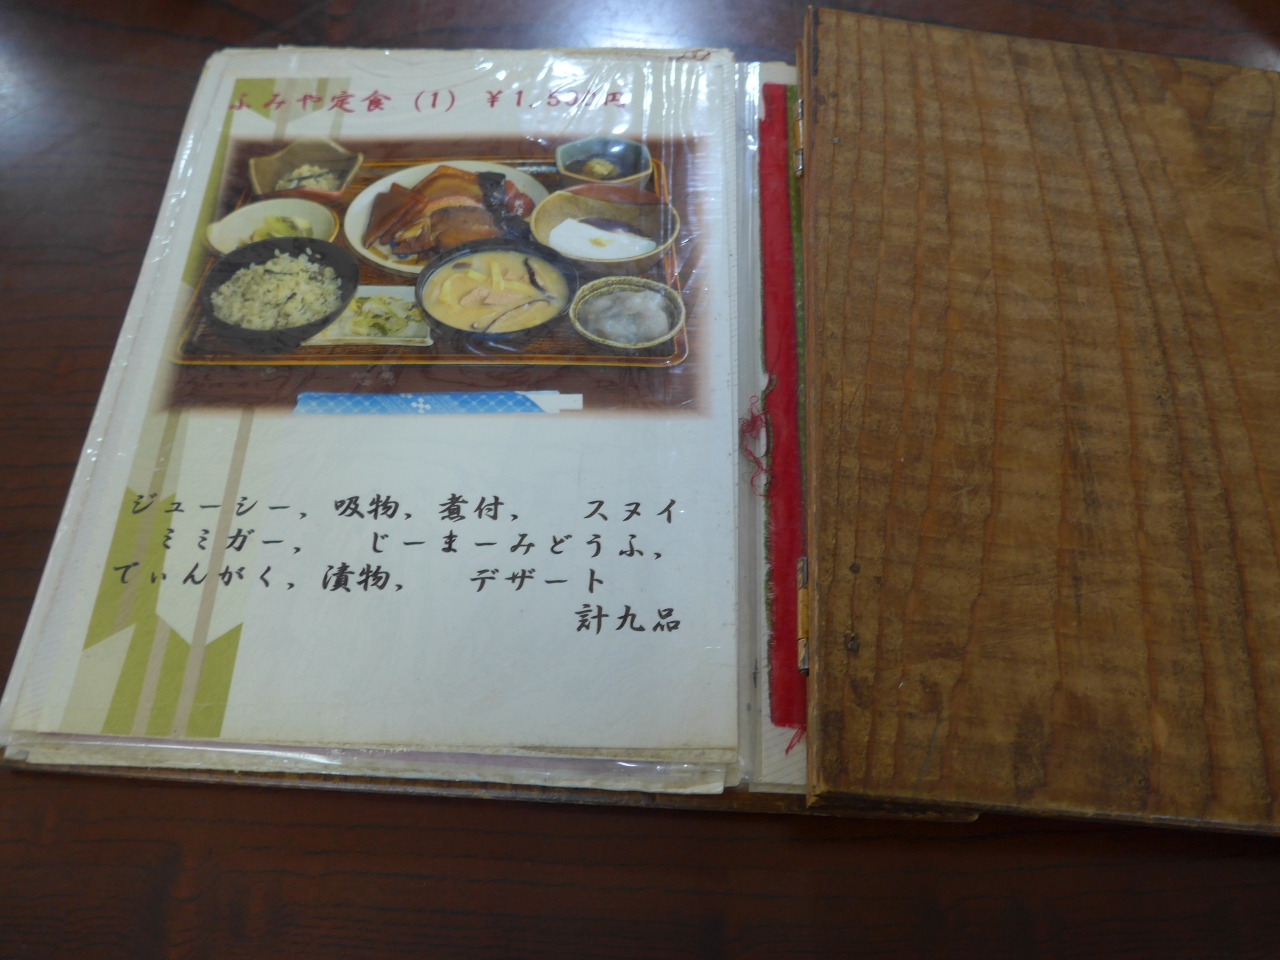 ふみや定食 (1) ¥1,500円
ジューシー, 吸物, 煮付, スヌイ
ミミガー, じーまーみどうふ,
でぃんがく, 漬物, デザート
計九品